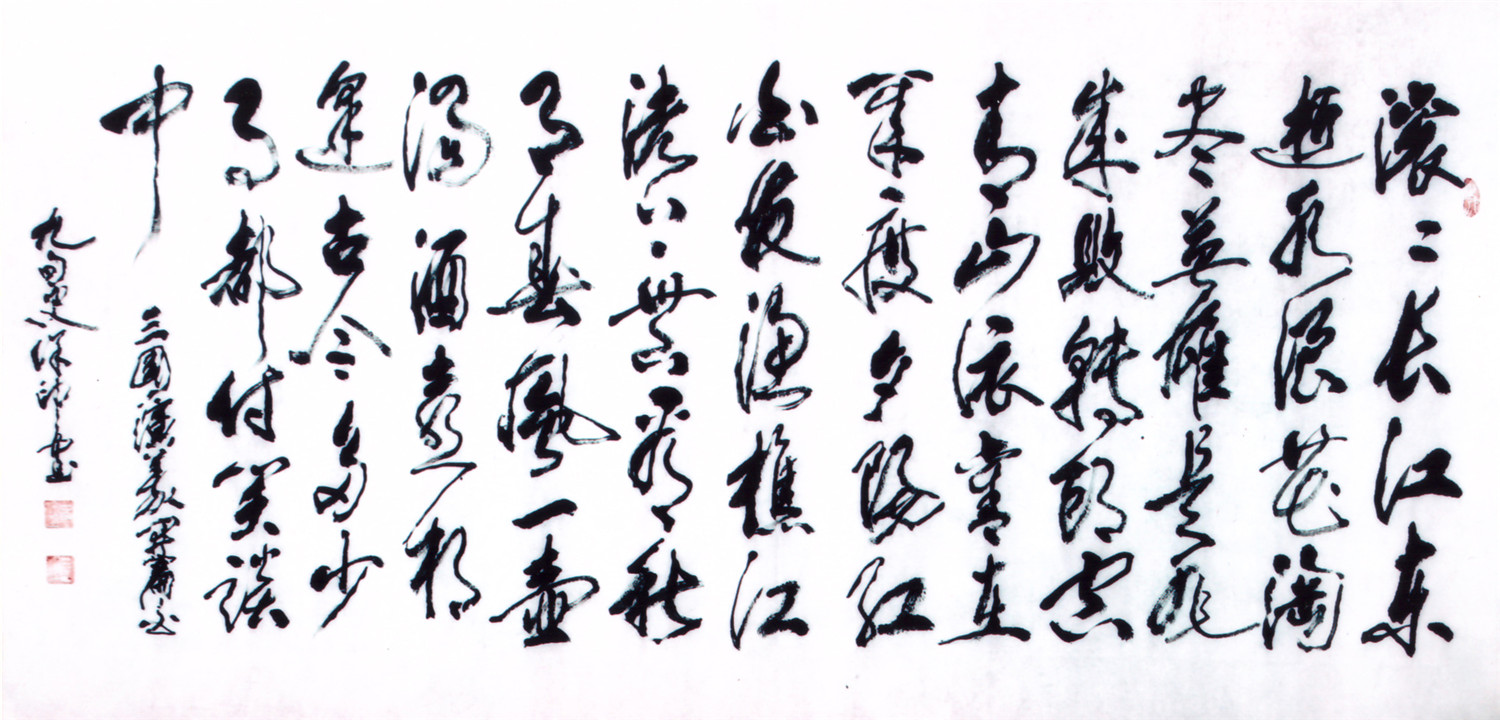 滚〻长江东
逝水浪花淘
尽英雄是非
成败转头空
青山依旧在
几度夕阳红
白发渔樵江
渚上惯看秋
月春风一壶
浊酒喜相
逢古今多少
事都付笑谈
中
三國演義
九旬叟